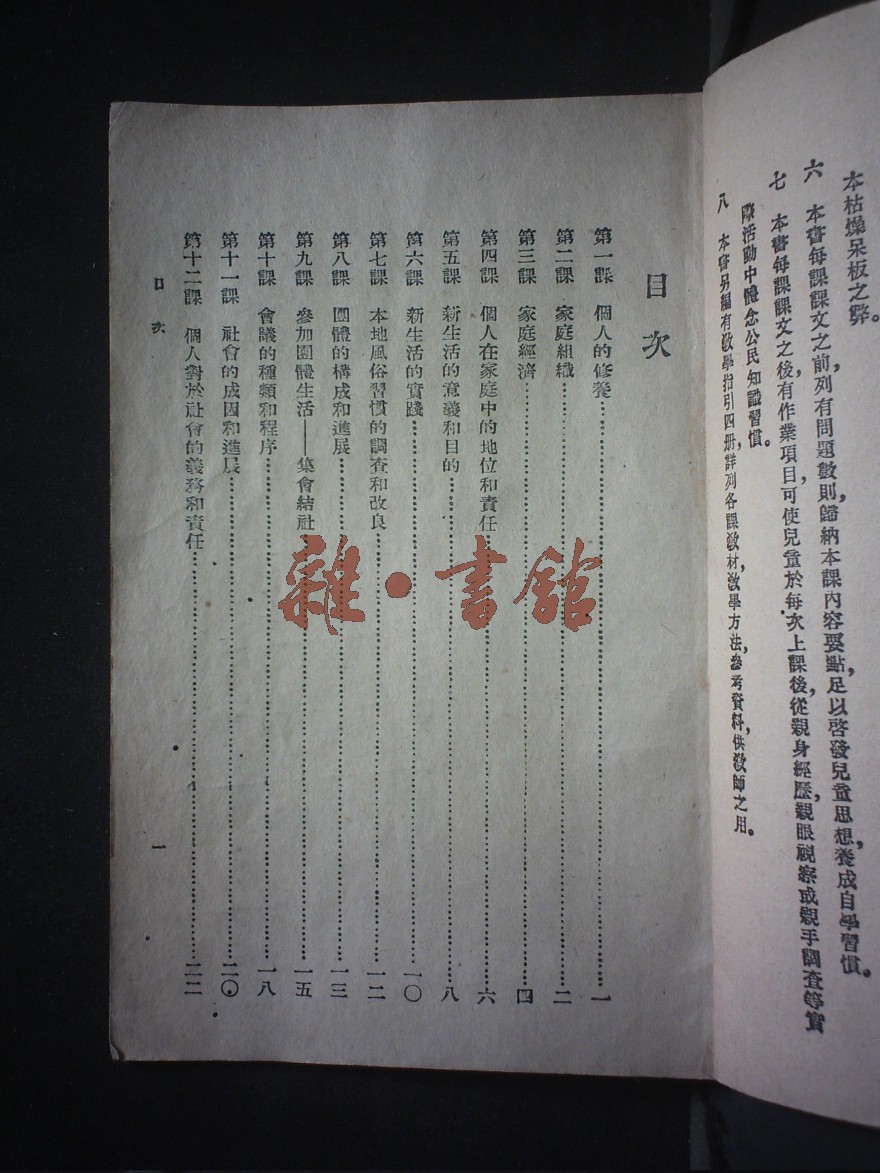 本枯燥呆板之弊。
六　本書每課課文之前，列有問題數則，歸納本課內容要點，足以啓發兒童思想，養成自學習慣。
七　本書每課課文之後，有作業項目，可使兒童於每次上課後，從親身經歷，親眼視察或親手調查等實
際活動中體念公民知識習慣。
八　本書另編有教學指引四册，詳列各課教材，教學方法，參考資料，供教師之用。
目次
第一課　個人的修養……一
第二課　家庭組織……二
第三課　家庭經濟……四
第四課　個人在家庭中的地位和責任……六
第五課　新生活的意義和目的……八
第六課　新生活的實踐……一〇
第七課　本地風俗習慣的調查和改良……一二
第八課　團體的構成和進展……一三
第九課　參加團體生活——集會結社……一五
第十課　會議的種類和程序……一八
第十一課　社會的成因和進展……二〇
第十二課　個人對於社會的義務和責任……二二
目次　一
雜·書館